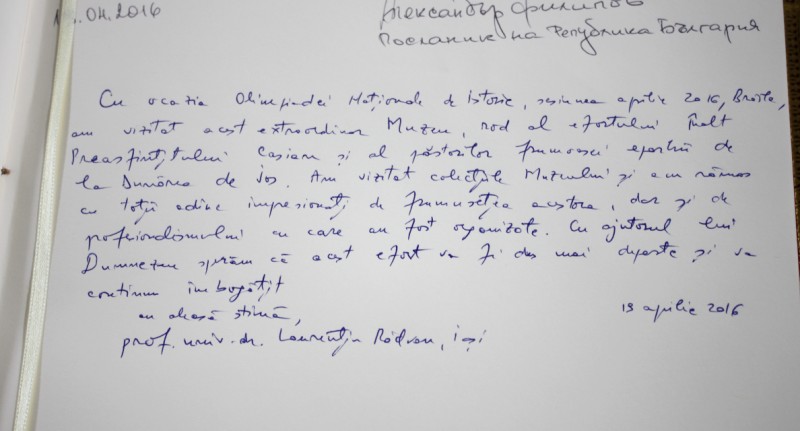 .04.2016
Александър Филипов
Посланик на Република България
Cu ocazia Olimpiadei Naționale de Istorie, sesiunea aprilie 2016, Brăila,
am vizitat acest extraordinar Muzeu, rod al efortului Înalt
Preasfințitului Casian și al păstorilor frumoasei eparhii de
la Dunărea de Jos. Am vizitat colecțiile Muzeului și am rămas
cu toții adânc impresionați de frumusețea acestora, dar și de
profesionalismului cu care au fost organizate. Cu ajutorul lui
Dumnezeu sperăm că acest efort va fi dus mai departe și va
continua îmbogățit
cu aleasă stimă,
19 aprilie 2016
prof. univ. dr. Laurențiu Rădvan, Iași